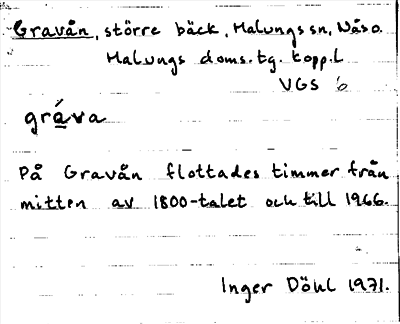 Gravån, större bäck, Malungs sn, Näs o.
Malungs doms. tg. kopp.l
VGS 6
gráva
På Gravån flottades timmer från
mitten av 1800-talet och till 1966.
Inger Döhl 1971.